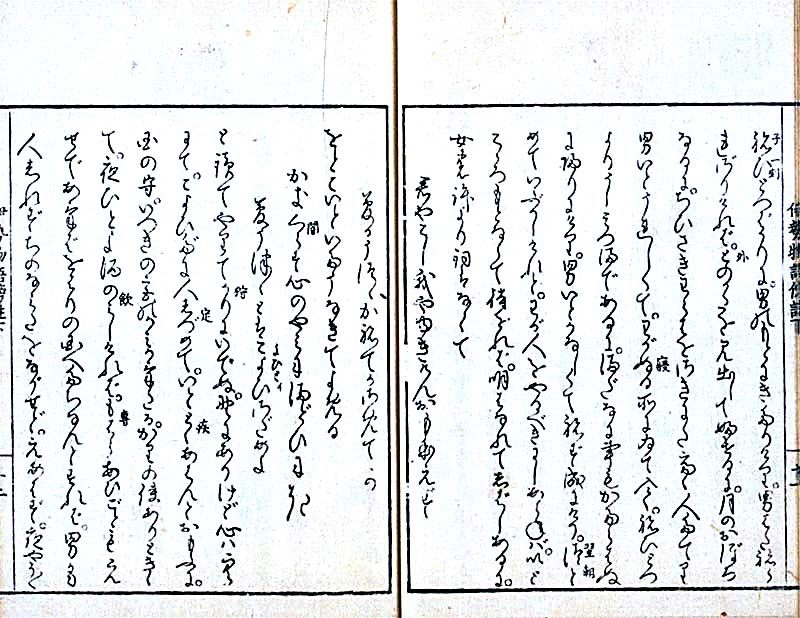 ねひとつばかりに。男のもとにきたりけり。男はたねら
れざりければ。とのかたを見出してふせるに。月のおぼろ
なるに。ちひさきわらはをさきにたてて。人たてり
男いとうれしくて。わがぬる所にゐて入て。ねひとつ
よりうしみつまであるに。まだなに事もかたらはぬ
にかへりにけり。男いとかなしくて。ねず成にけり。つと
めていぶかしけれど。わが人をやるべきにしあらねば。いと
こゝろもとなくて待をれば。明はなれてしばしあるに。
女のもとより詞はなくて
君やこし我や行けんおもほえず
夢かうつゝかねてかさめてか
をとこいといたうなきてよめる
かきくらす心のやみにまどひにき
夢うつゝとはこよひさだめよ
と読てやりてかりにいでぬ。野にありけど心ハそら
にて。こよひだに人しづめて。いととくあはんとおもふに。
国の守。いつきの宮のかみかけたるが。かりの使ありときゝ
て。夜ひとよ酒のみしければ。もはらあひごともえ
せで。あけばをはりの国へたちなんとすれば。男も
人しれずちのなみだをながせど。えあはず。夜やうやく